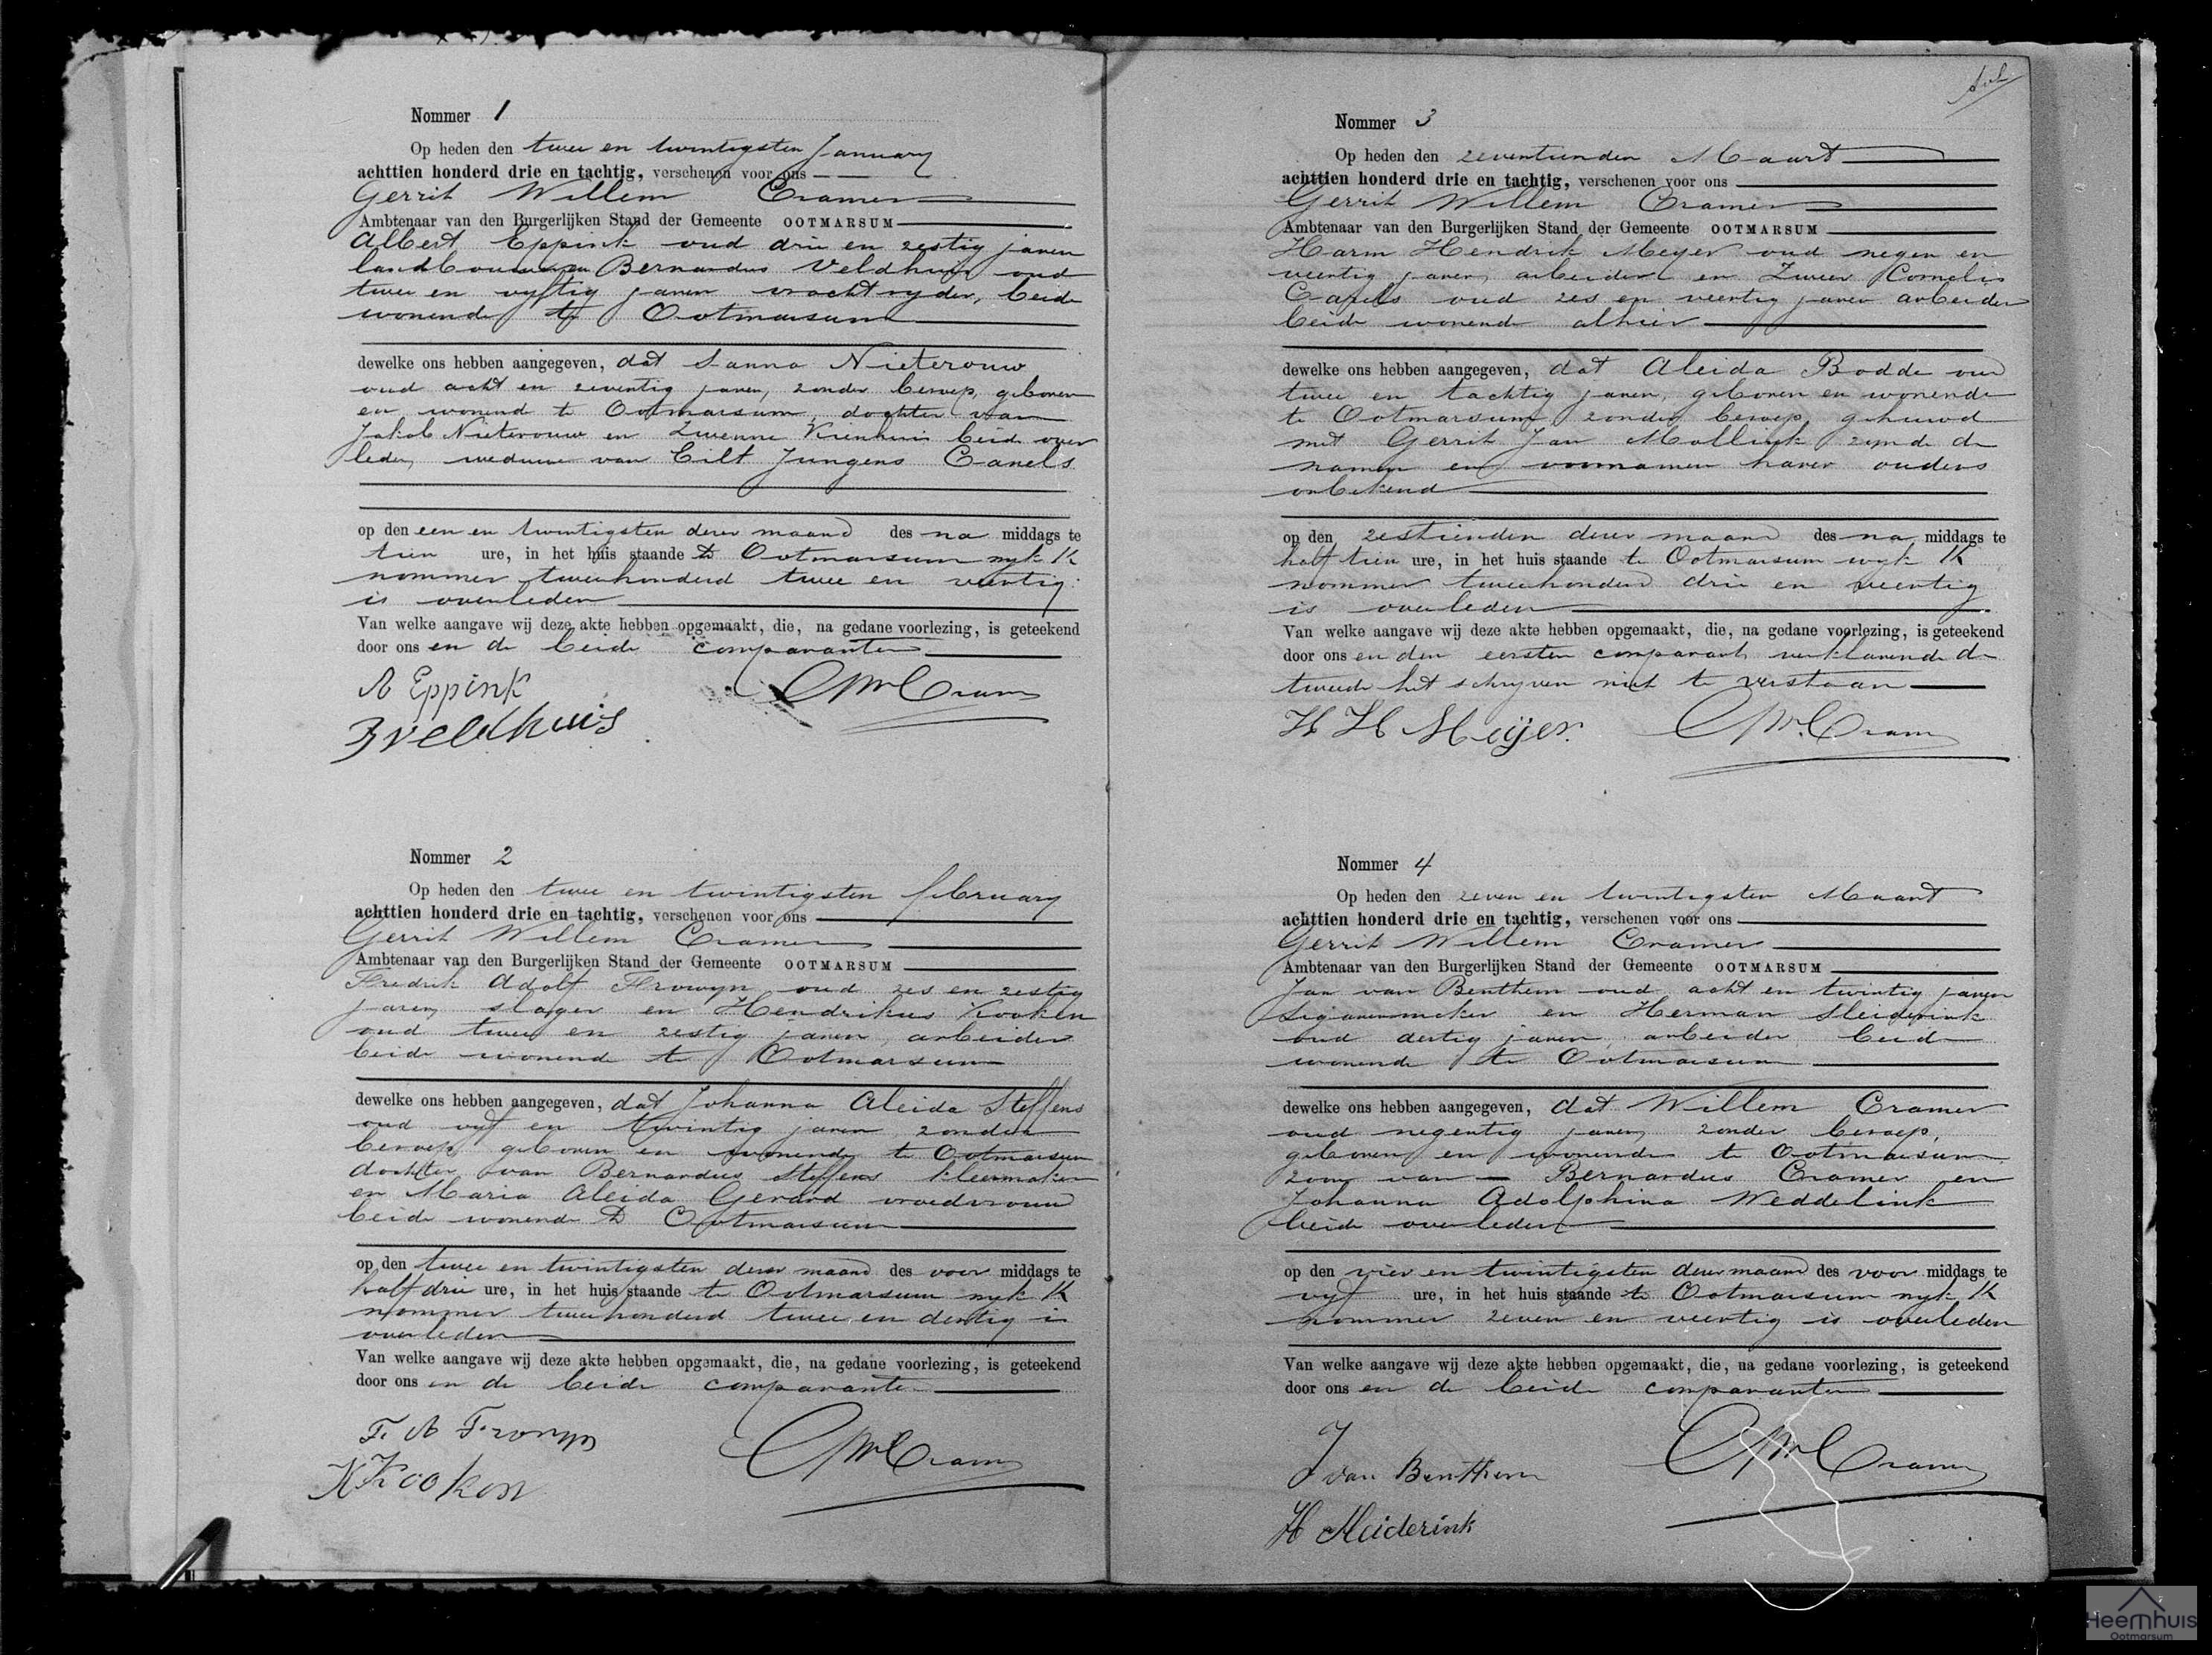 Nommer 1
Op heden den twee en twintigsten January
achttien honderd drie en tachtig, verschenen voor ons
Gerrit Willem Cramer
Ambtenaar van den Burgerlijken Stand der Gemeente OOTMARSUM
Albert Eppink oud drie en zestig jaren
landbouwer en Bernardus Veldhuis oud
twee en vyftig jaren vrachtryder, beide
wonende te Ootmarsum
dewelke ons hebben aangegeven, dat Sanna Nieterouw
oud acht en zeventig jaren, zonder beroep, geboren
en wonend te Ootmarsum, dochter van
Jakob Nieterouw en Zwenne Kienhuis beide over
leden, weduwe van Eilt Jungens Canels
op den een en twintigsten dezer maand des na middags te
tien ure, in het huis staande te Ootmarsum wyk K
nommer tweehonderd twee en veertig
is overleden
Van welke aangave wij deze akte hebben opgemaakt, die, na gedane voorlezing, is geteekend
door ons en de beide comparanten
A Eppink
BVeldhuis
GWCramer
Nommer 2
Op heden den twee en twintigsten february
achttien honderd drie en tachtig, verschenen voor ons
Gerrit Willem Cramer
Ambtenaar van den Burgerlijken Stand der Gemeente OOTMARSUM
Fredrik Adolf Frowyn oud zes en zestig
jaren slager en Hendrikus Kooken
oud twee en zestig jaren, arbeider
beide wonend te Ootmarsum
dewelke ons hebben aangegeven, dat Johanna Aleida Steffens
oud vyf en twintig jaren zonder
beroep geboren en wonende te Ootmarsum
dochter van Bernardus Steffens kleermaker
en Maria Aleida Gerard vroedvrouw
beide wonende te Ootmarsum
op den twee en twintigsten dezer maand des voor middags te
half drie ure, in het huis staande te Ootmarsum wyk K
nommer tweehonderd twee en dertig is
overleden
Van welke aangave wij deze akte hebben opgemaakt, die, na gedane voorlezing, is geteekend
door ons en de beide comparanten
F. A Frowyn
H Kooken
GWCramer
Nommer 3
Op heden den zeventienden Maart
achttien honderd drie en tachtig, verschenen voor ons
Gerrit Willem Cramer
Ambtenaar van den Burgerlijken Stand der Gemeente OOTMARSUM
Harm Hendrik Meyer oud negen en
veertig jaren, arbeider en Zweer Cornelis
Capels oud zes en veertig jaren arbeider
beide wonende alhier
dewelke ons hebben aangegeven, dat Aleida Bodde oud
twee en tachtig jaren, geboren en wonende
te Ootmarsum zonder beroep, gehuwd
met Gerrit Jan Mollink zynde de
namen en voornamen harer ouders
onbekend
op den zestienden dezer maand des na middags te
half tien ure, in het huis staande te Ootmarsum wyk K
nommer tweehonderd drie en veertig
is overleden
Van welke aangave wij deze akte hebben opgemaakt, die, na gedane voorlezing, is geteekend
door ons en den eersten comparant, verklarende de
tweede het schryven niet te verstaan
H H Meijer
GW.Cramer
Nommer 4
Op heden den zeven en twintigsten Maart
achttien honderd drie en tachtig, verschenen voor ons
Gerrit Willem Cramer
Ambtenaar van den Burgerlijken Stand der Gemeente OOTMARSUM
Jan van Benthem oud acht en twintig jaren
sigarenmaker en Herman Sleiderink
oud dertig jaren, arbeider beide
wonende te Ootmarsum
dewelke ons hebben aangegeven, dat Willem Cramer
oud negentig jaren, zonder beroep,
geboren en wonende te Ootmarsum
zoon van Bernardus Cramer en
Johanna Adolphina Weddelink
beide overleden
op den vier en twintigsten dezer maand des voor middags te
vyf ure, in het huis staande te Ootmarsum wyk K
nommer zeven en veertig is overleden
Van welke aangave wij deze akte hebben opgemaakt, die, na gedane voorlezing, is geteekend
door ons en de beide comparanten
J van Benthem
H Sleiderink
GWCramer
Heemhuis
Ootmarsum